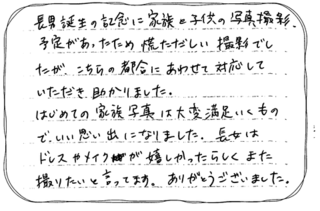 長男誕生の記念に家族と子供の写真撮影.
予定があったため慌ただしい撮影でし
たが、こちらの都合にあわせて対応して
いただき助かりました。
はじめての家族写真は大変満足いくもの
で、いい思い出になりました。長女は
ドレスやメイクが嬉しかったらしくまた
撮りたいと言ってます。ありがとうございました。